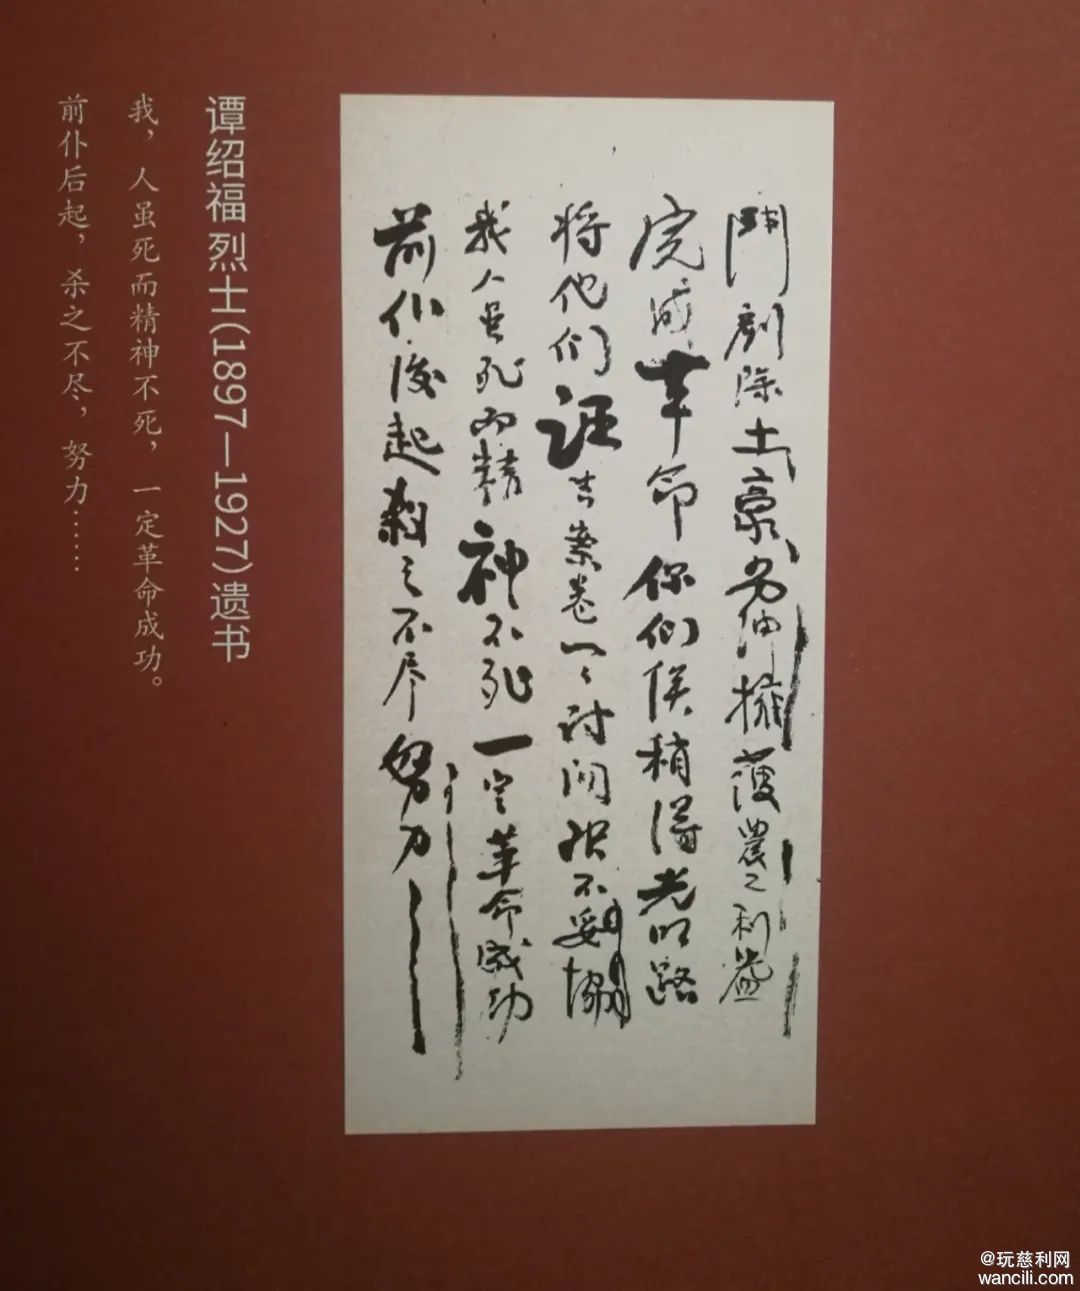 鬥剷除土豪劣绅擁護農之利益
完成革命你们俟稍得光明路
将他们誣告案卷一一讨问决不妥協
我人虽死而精神不死一定革命成功
前仆後起殺之不尽努力
谭绍福 烈士(1897—1927)遗书
我，人虽死而精神不死，一定革命成功。
前仆后起，杀之不尽，努力……
@玩慈利网
wancili.com